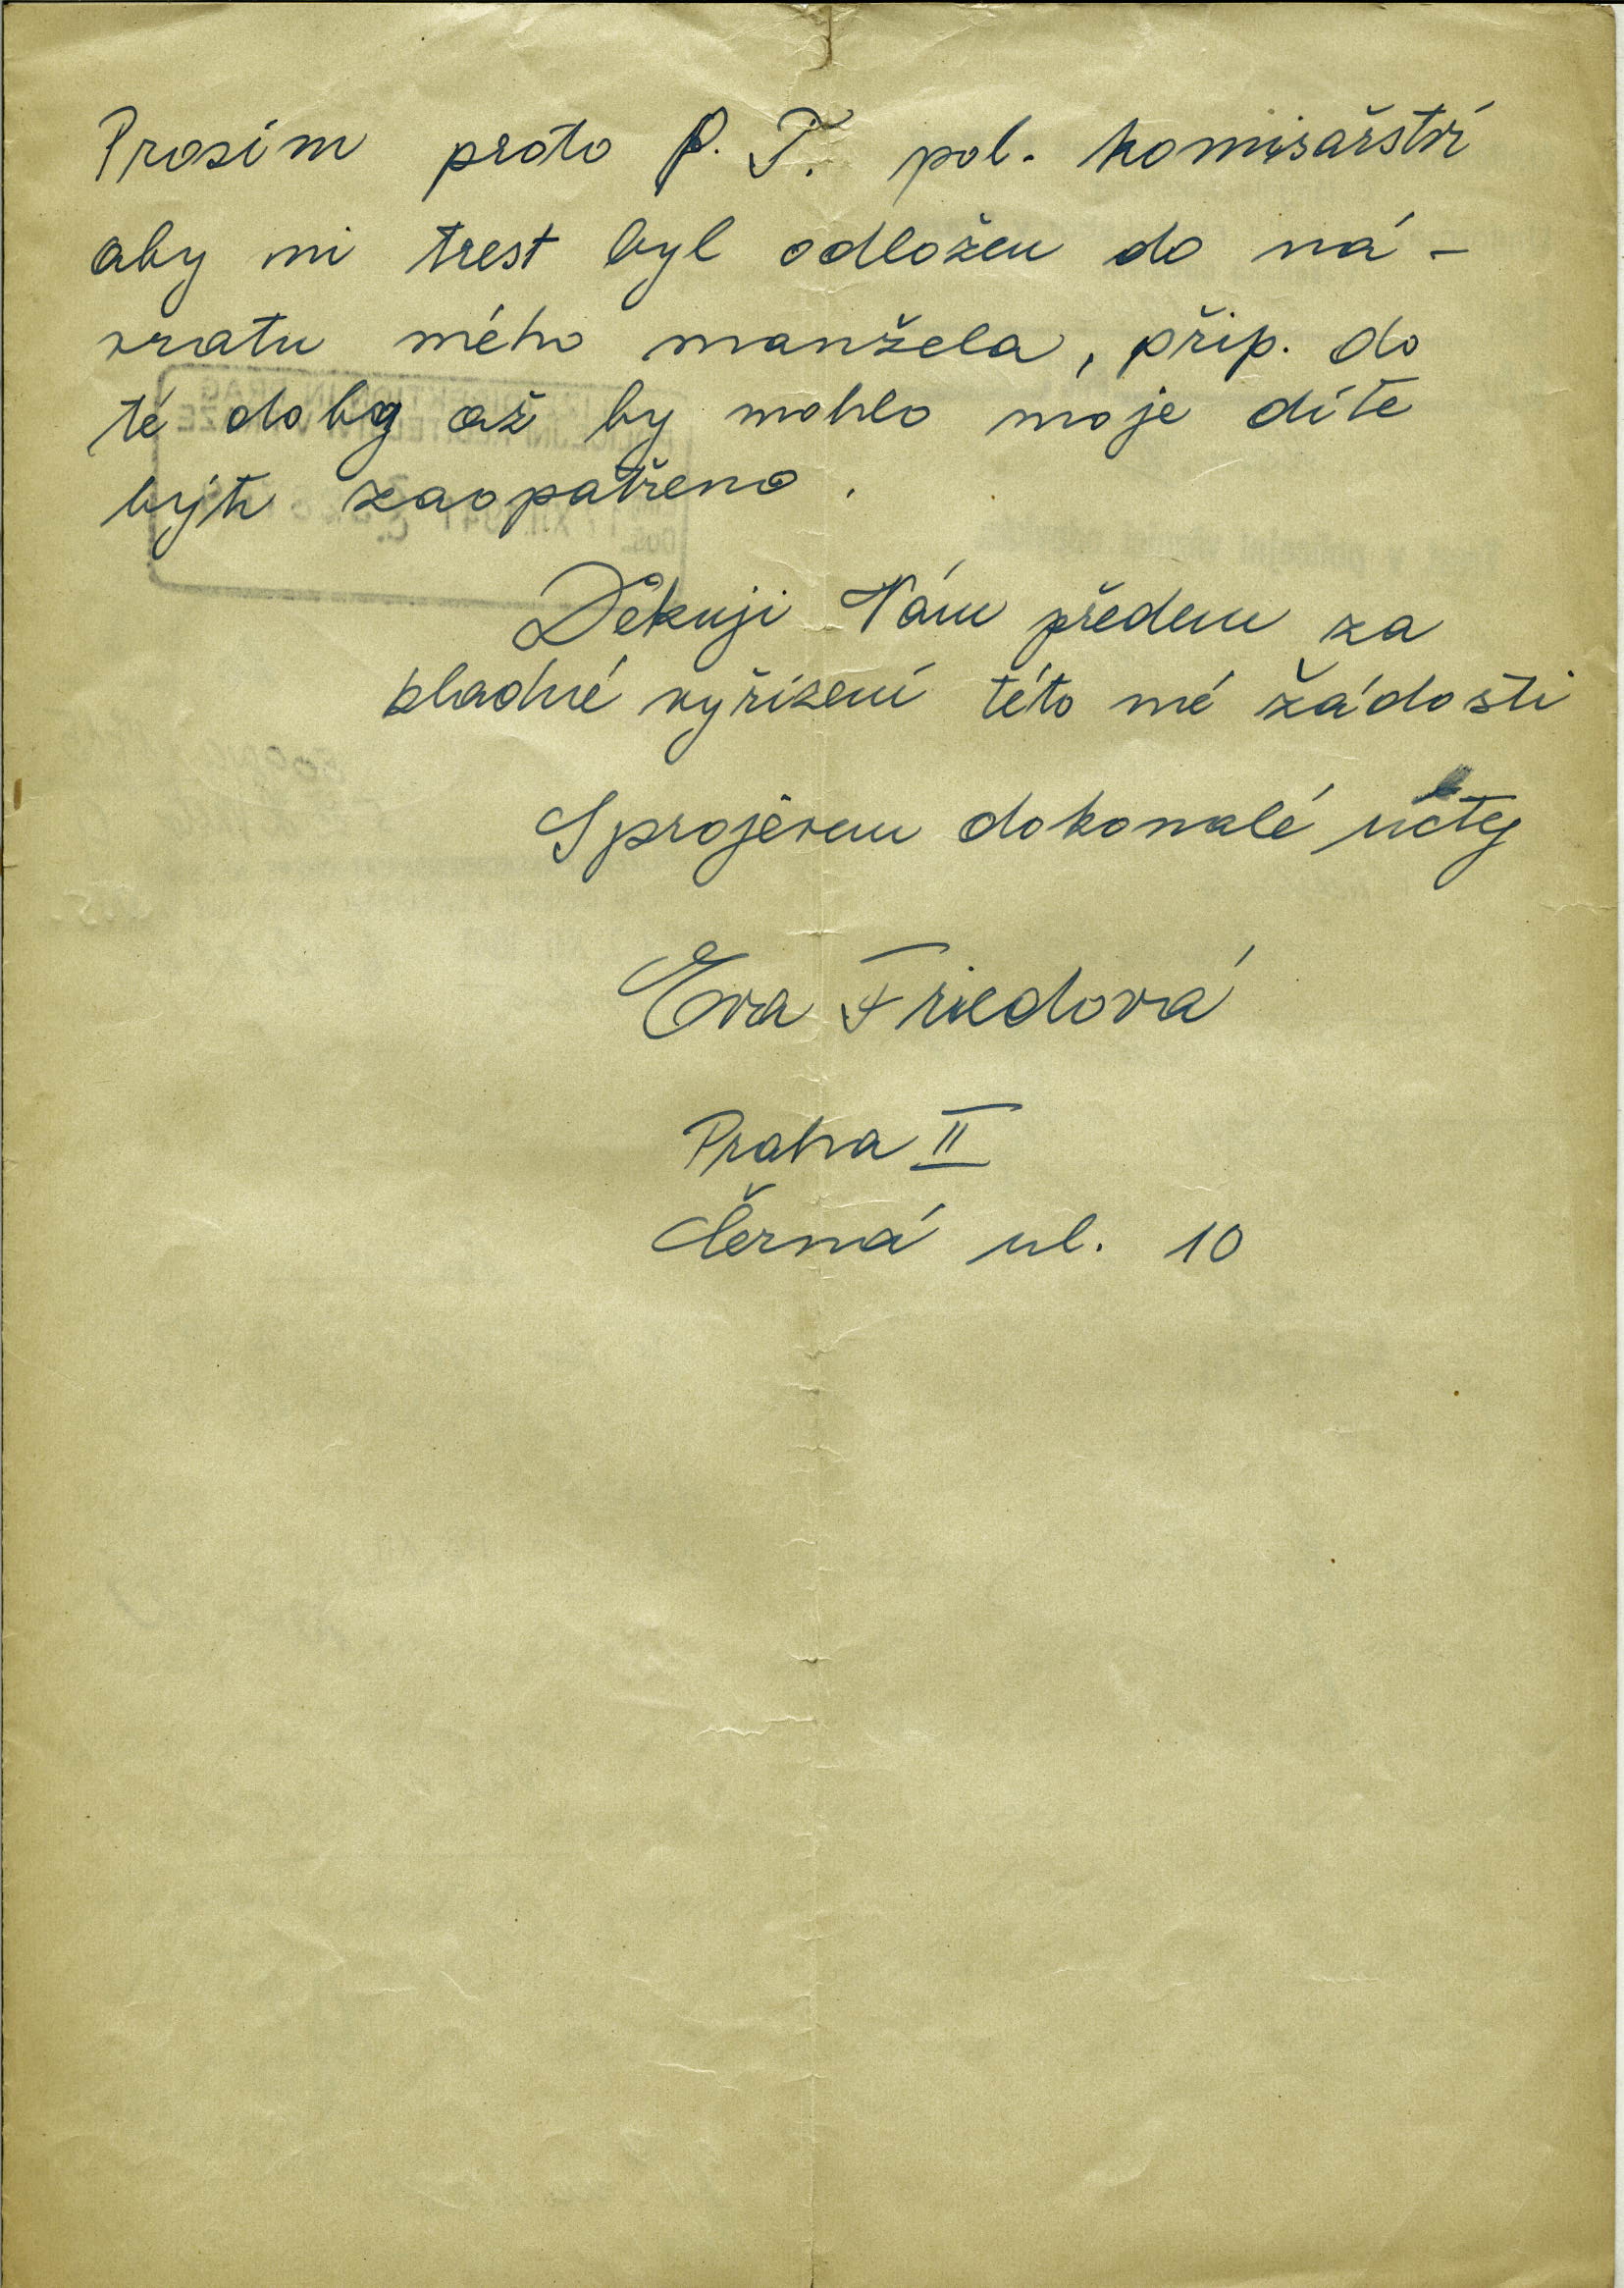 Prosím proto P. T. pol. komisařství
aby mi trest byl odložen do ná-
vratu mého manžela, příp. do
té doby až by mohlo moje dítě
býti zaopatřeno.
Děkuji Vám předem za
kladné vyřízení této mé žádosti
S projevem dokonalé úcty
Eva Friedová
Praha II
Černá ul. 10